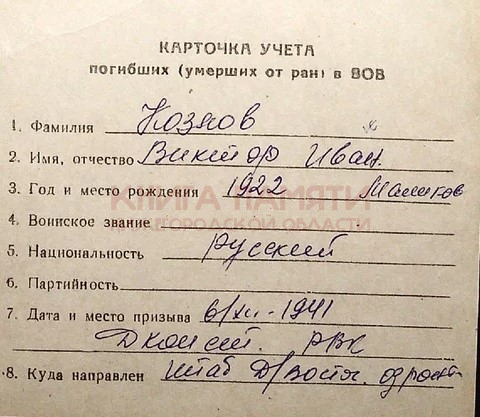 КАРТОЧКА УЧЕТА
погибших (умерших от ран) в ВОВ
1. Фамилия Козлов
2. Имя, отчество Виктор Иван.
3. Год и место рождения 1922
КНИГА ПАМЯТИ
НИЖЕГОРОДСКОЙ ОБЛАСТИ
4. Воинское звание
5. Национальность русский
6. Партийность
7. Дата и место призыва 6/XII-1941
РВК
8. Куда направлен штаб Д/Вост. фронт